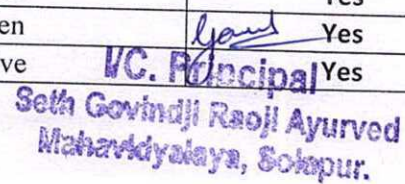 Yes
en Yes
ve Yes
I/C. Principal
Seth Govindji Raoji Ayurved
Mahavidyalaya, Solapur.